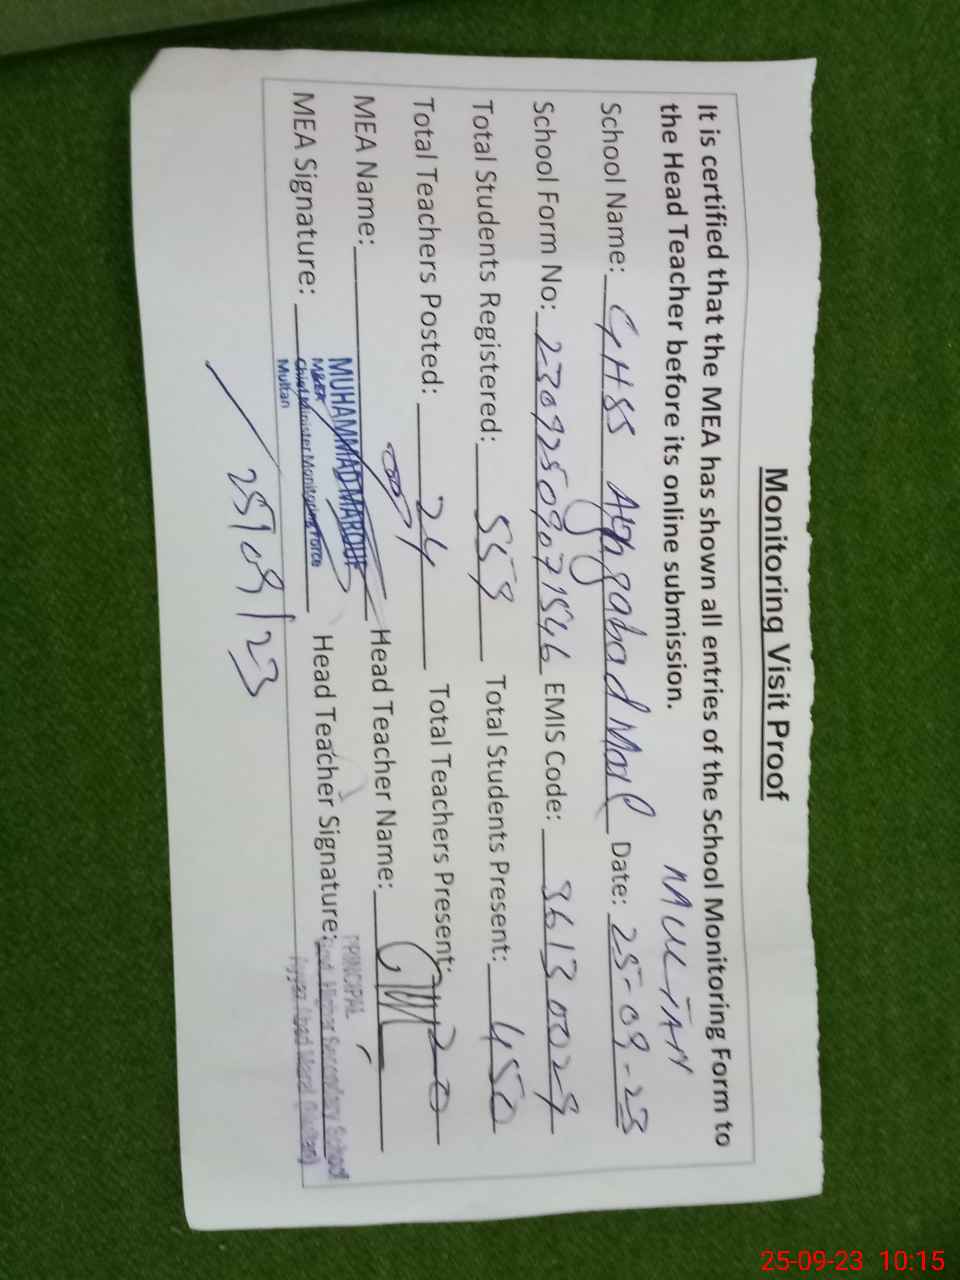 Monitoring Visit Proof
It is certified that the MEA has shown all entries of the School Monitoring Form to
the Head Teacher before its online submission.
MULTAN
School Name: GHSS Ayyazabad Maral Date: 25-09-23
School Form No: 23092509071546 EMIS Code: 36130029
Total Students Registered: 559 Total Students Present: 450
Total Teachers Posted: 24 Total Teachers Present: 20
MEA Name: MUHAMMAD MAROUF Head Teacher Name:
M&EA
Chief Minister Monitoring Force
Multan
MEA Signature: Head Teacher Signature:
PRINCIPAL
Govt. Higher Secondary School
Ayyaz Abad Maral (Multan)
25/09/23
25-09-23 10:15